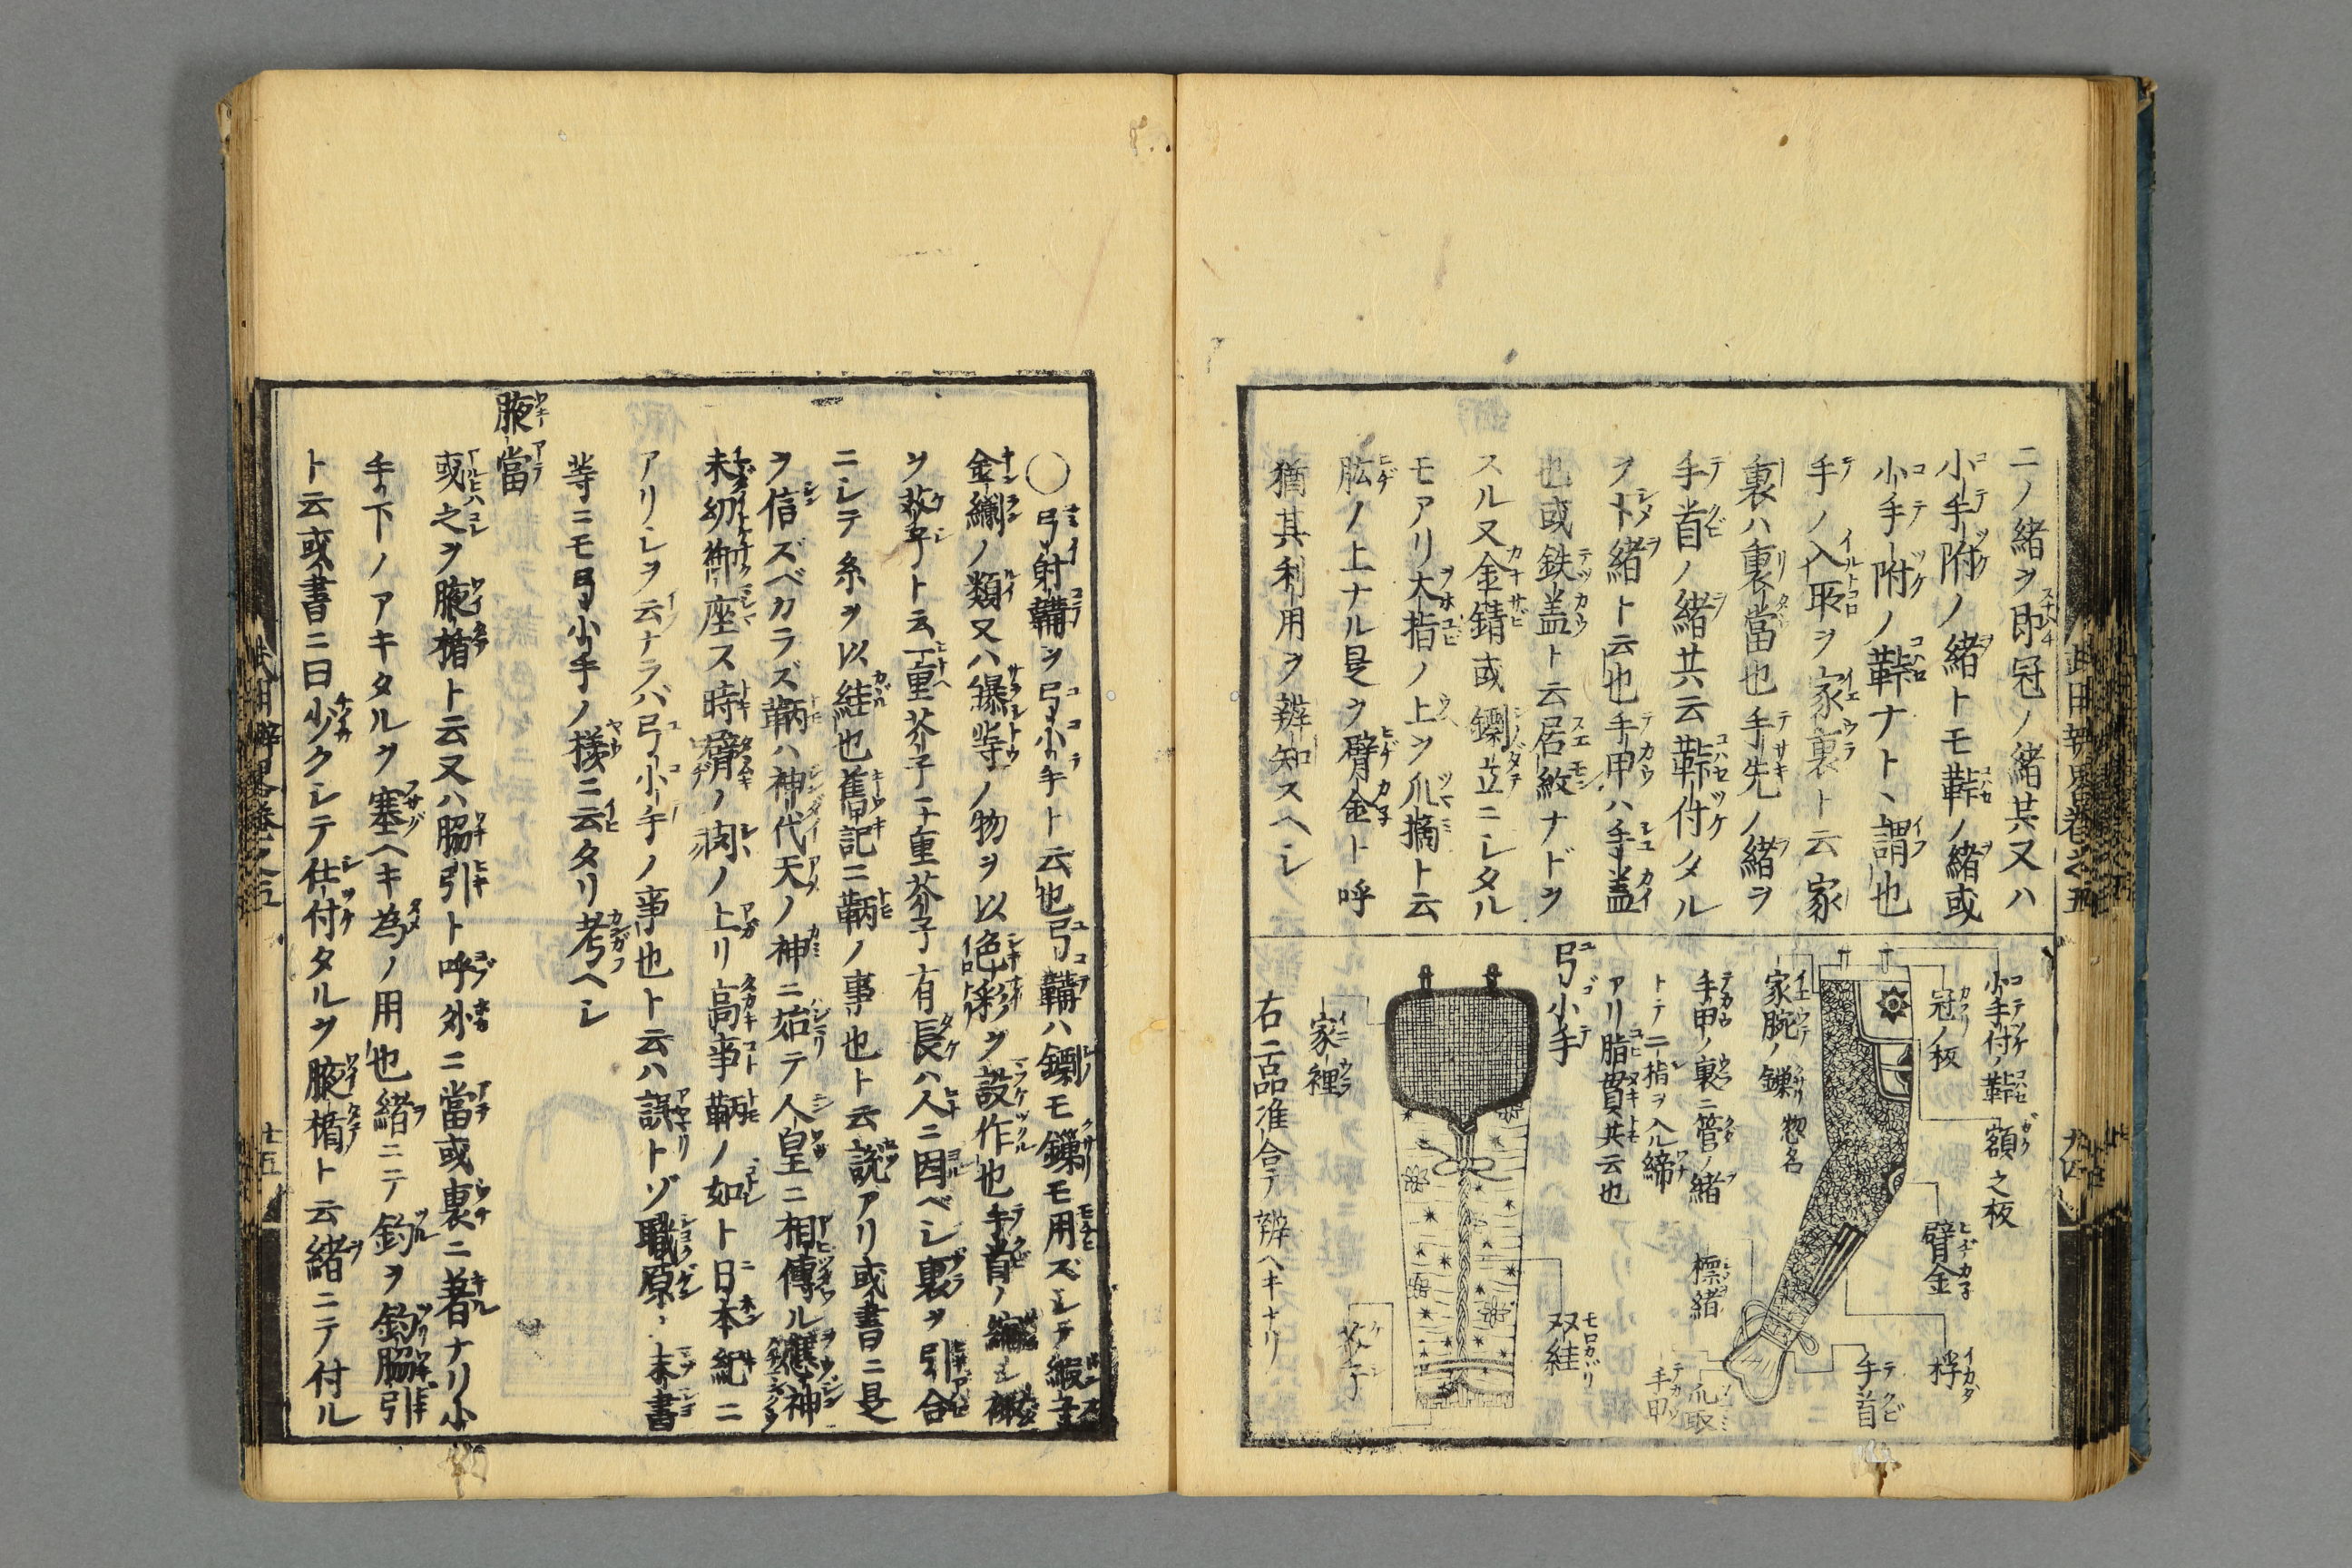 ニノ緒ヲ即冠ノ緒共又ハ
小手附ノ緒トモ鞐ノ緒或
小手附ノ鞐ナト、謂也
手ノ入所ヲ家裏ト云家
裏ハ裏當也手先ノ緒ヲ
手首ノ緒共云鞐付タル
ヲ〆緒ト云也手甲ハ手盖
也或鉄盖ト云居紋ナドヲ
スル又金錆或
立ニシタル
モアリ大指ノ上ヲ爪摘ト云
肱ノ上ナル是ヲ臂金ト呼
猶其利用ヲ辨知スヘシ
小手付ノ鞐
額之板
冠ノ板
臂金
桴
手首
家腕ノ鏁惣名
手甲ノ裏ニ管ノ緒
トテ二指ヲ入ル締
アリ指貫共云也
標緒
爪取
手甲
弓小手
双絓
家裡
芥子
右二品准合テ辨ヘキナリ
〇弓射鞴ヲ弓小手ト云也弓鞴ハ
モ鏁モ用ズシテ緞子
金襴ノ類又ハ
等ノ物ヲ以色彩ヲ設作也手首ノ
ヲ芥子ト云一重芥子二重芥子有長ハ人ニ因ベシ裏ヲ引合
ニシテ糸ヲ以絓也舊記ニ鞆ノ事也ト云説アリ或書ニ是
ヲ信ズベカラズ鞆ハ神代天ノ神ニ始テ人皇ニ相傳ル應神
未幼御座ス時臂ノ肉ノ上リ高事鞆ノ如ト日本紀ニ
アリシヲ云ナラバ弓小手ノ事也ト云ハ誤トゾ職原ノ末書
等ニモ弓小手ノ様ニ云タリ考ヘシ
腋當
或之ヲ腋楯ト云又ハ脇引ト呼外ニ當或裏ニ著ナリ小
手下ノアキタルヲ塞ヘキ為ノ用也緒ニテ釣ヲ釣脇引
ト云或書ニ曰少クシテ仕付タルヲ腋楯ト云緒ニテ付ル
十五